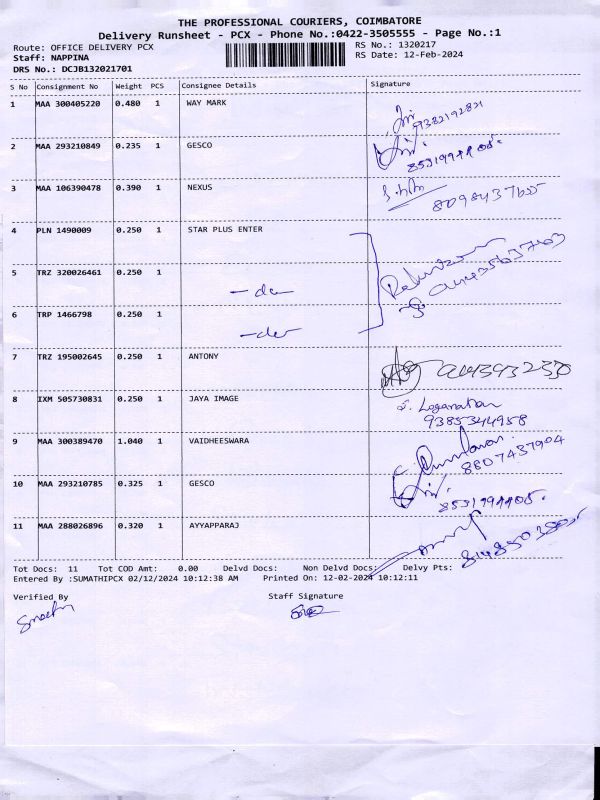 THE PROFESSIONAL COURIERS, COIMBATORE
Delivery Runsheet - PCX - Phone No.:0422-3505555 - Page No.:1
Route: OFFICE DELIVERY PCX RS No.: 1320217
Staff: NAPPINA RS Date: 12-Feb-2024
DRS No.: DCJB132021701
S No Consignment No Weight PCS Consignee Details Signature
1 MAA 300405220 0.480 1 WAY MARK
9382192821
2 MAA 293210849 0.235 1 GESCO
3 MAA 106390478 0.390 1 NEXUS
8098437655
4 PLN 1490009 0.250 1 STAR PLUS ENTER
5 TRZ 320026461 0.250 1
-do-
6 TRP 1466798 0.250 1
-do-
7 TRZ 195002645 0.250 1 ANTONY
8 IXM 505730831 0.250 1 JAYA IMAGE
S. Loganathan
9385344958
9 MAA 300389470 1.040 1 VAIDHEESWARA
8807437904
10 MAA 293210785 0.325 1 GESCO
11 MAA 288026896 0.320 1 AYYAPPARAJ
Tot Docs: 11 Tot COD Amt: 0.00 Delvd Docs: Non Delvd Docs: Delvy Pts:
Entered By :SUMATHIPCX 02/12/2024 10:12:38 AM Printed On: 12-02-2024 10:12:11
Verified By Staff Signature